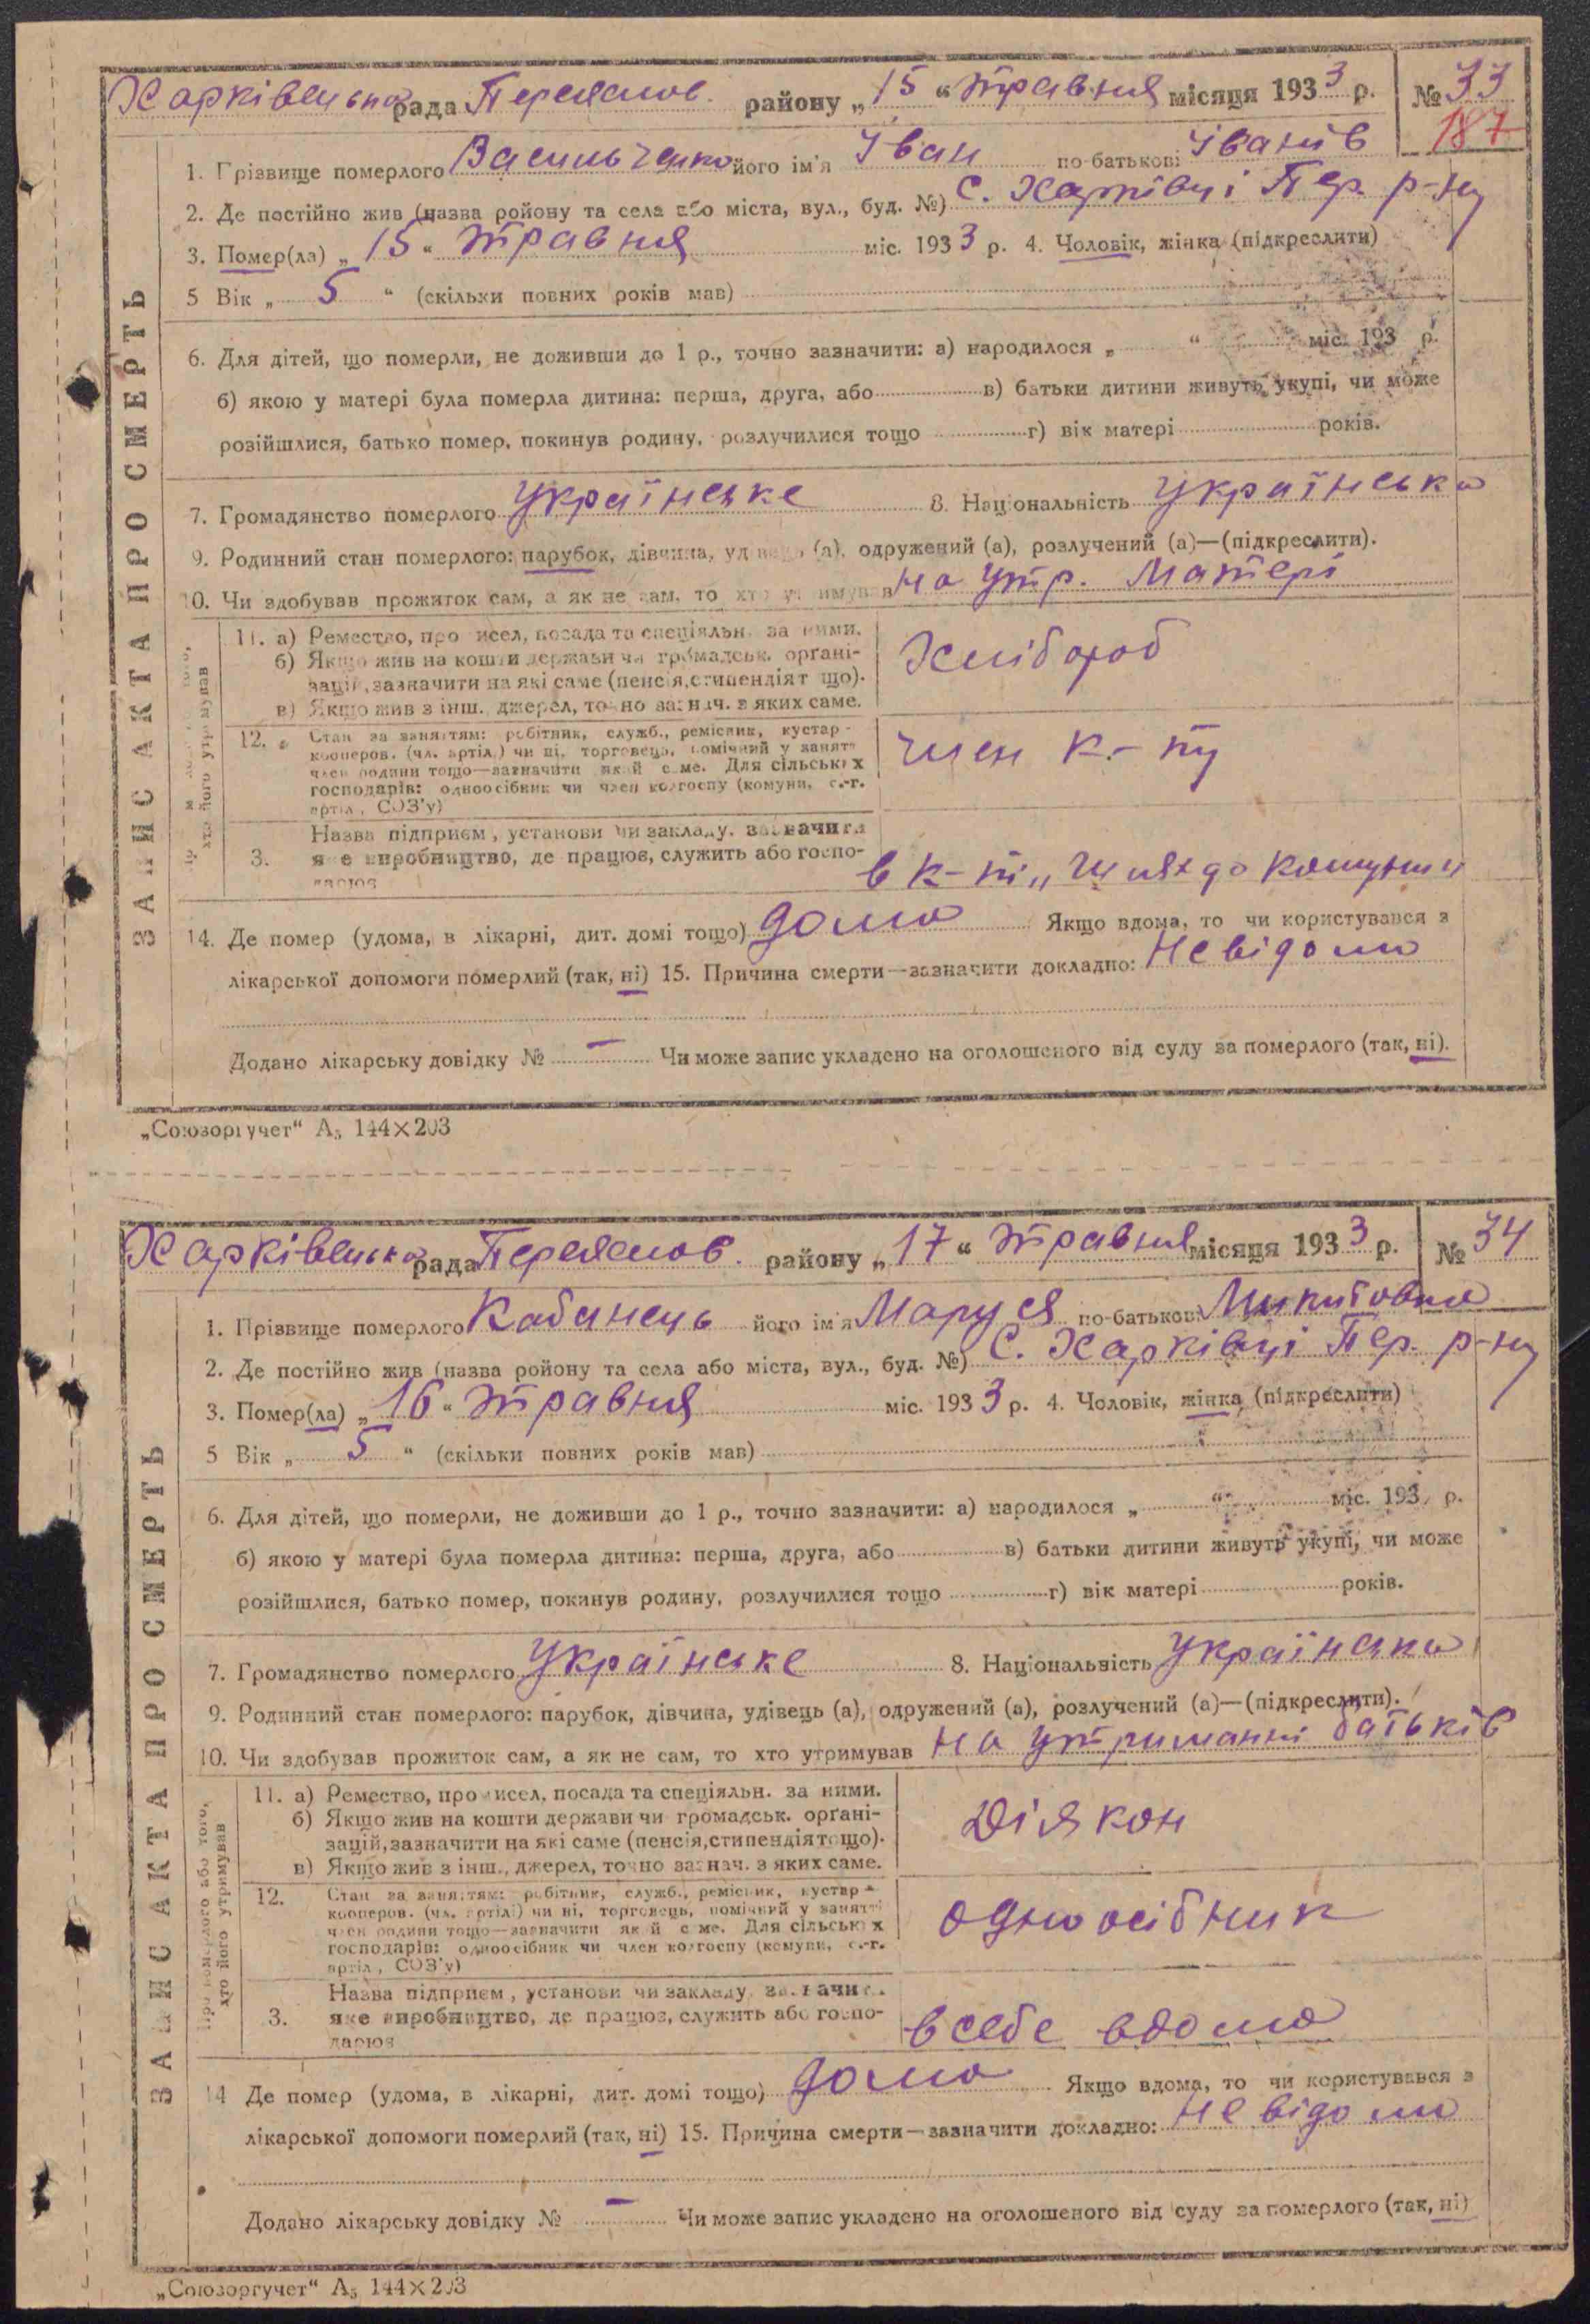 Харківецька рада Переяслов. району „15“ травня місяця 1933 р. № 33
187
ЗАПИС АКТА ПРО СМЕРТЬ
1. Прізвище померлого Васильченко його ім'я Іван по-батькові Іванів
2. Де постійно жив (назва ройону та села або міста, вул., буд. №) С. Харківці Пер. р-ну
3. Помер(ла) „15“ травня міс. 1933 р. 4. Чоловік, жінка (підкреслити)
5 Вік „5“ (скільки повних років мав)
6. Для дітей, що померли, не доживши до 1 р., точно зазначити: а) народилося „ “ міс. 193 р.
б) якою у матері була померла дитина: перша, друга, або в) батьки дитини живуть укупі, чи може
розійшлися, батько помер, покинув родину, розлучилися тощо г) вік матері років.
7. Громадянство померлого українське 8. Національність українська
9. Родинний стан померлого: парубок, дівчина, удівець (а), одружений (а), розлучений (а)—(підкреслити).
10. Чи здобував прожиток сам, а як не сам, то хто утримував на утр. матері
11. а) Ремество, промисел, посада та спеціяльн. за ними.
б) Якщо жив на кошти держави чи громадськ. орґані-
зацій, зазначити на які саме (пенсія, стипендія тощо).
в) Якщо жив з інш., джерел, точно зазнач. з яких саме.
Хлібороб
12. Стан за заняттям: робітник, служб., ремісник, кустар -
кооперов. (чл. артілі) чи ні, торговець, помічний у занятті
член родини тощо—зазначити який саме. Для сільських
господарів: одноосібник чи член колгоспу (комуни, с.-г.
артіл, СОЗ'у)
член к.-пу
3. Назва підприєм, установи чи закладу, зазначити
яке виробництво, де працює, служить або госпо-
дарює
в к-пі „Шлях до комуни“
14. Де помер (удома, в лікарні, дит. домі тощо) дома Якщо вдома, то чи користувався з
лікарської допомоги померлий (так, ні) 15. Причина смерти—зазначити докладно: Невідома
Додано лікарську довідку № — Чи може запис укладено на оголошеного від суду за померлого (так, ні).
„Союзоргучет“ А₅ 144×203
Харківецька рада Переяслов. району „17“ травня місяця 1933 р. № 34
ЗАПИС АКТА ПРО СМЕРТЬ
1. Прізвище померлого Кабанець його ім'я Маруся по-батькові Микитовна
2. Де постійно жив (назва ройону та села або міста, вул., буд. №) С. Харківці Пер. р-ну
3. Помер(ла) „16“ травня міс. 1933 р. 4. Чоловік, жінка (підкреслити)
5 Вік „5“ (скільки повних років мав)
6. Для дітей, що померли, не доживши до 1 р., точно зазначити: а) народилося „ “ міс. 193 р.
б) якою у матері була померла дитина: перша, друга, або в) батьки дитини живуть укупі, чи може
розійшлися, батько помер, покинув родину, розлучилися тощо г) вік матері років.
7. Громадянство померлого українське 8. Національність українська
9. Родинний стан померлого: парубок, дівчина, удівець (а), одружений (а), розлучений (а)—(підкреслити).
10. Чи здобував прожиток сам, а як не сам, то хто утримував на утриманні батьків
Про померлого або того,
хто його утримував
11. а) Ремество, промисел, посада та спеціяльн. за ними.
б) Якщо жив на кошти держави чи громадськ. орґані-
зацій, зазначити на які саме (пенсія, стипендія тощо).
в) Якщо жив з інш., джерел, точно зазнач. з яких саме.
Діякон
12. Стан за заняттям: робітник, служб., ремісник, кустар -
кооперов. (чл. артілі) чи ні, торговець, помічний у занятті
член родини тощо—зазначити який саме. Для сільських
господарів: одноосібник чи член колгоспу (комуни, с.-г.
артіл, СОЗ'у)
одноосібник
3. Назва підприєм, установи чи закладу, зазначити
яке виробництво, де працює, служить або госпо-
дарює
в себе вдома
14 Де помер (удома, в лікарні, дит. домі тощо) дома Якщо вдома, то чи користувався з
лікарської допомоги померлий (так, ні) 15. Причина смерти—зазначити докладно: Невідома
Додано лікарську довідку № — Чи може запис укладено на оголошеного від суду за померлого (так, ні)
„Союзоргучет“ А₅ 144×203